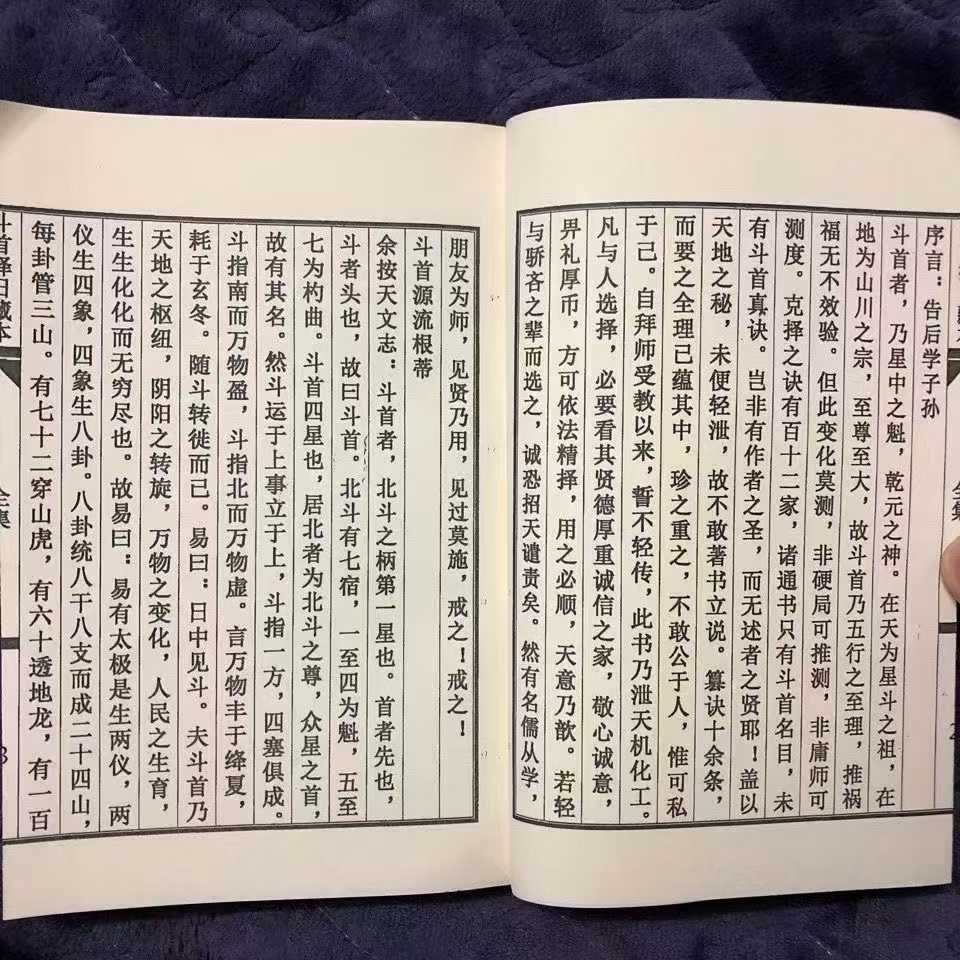 序言：告后学子孙
斗首者，乃星中之魁，乾元之神。在天为星斗之祖，在
地为山川之宗，至尊至大，故斗首乃五行之至理，推祸
福无不效验。但此变化莫测，非硬局可推测，非庸师可
测度。克择之诀有百十二家，诸通书只有斗首名目，未
有斗首真诀。岂非有作者之圣，而无述者之贤耶！盖以
天地之秘，未便轻泄，故不敢著书立说。篡诀十余条，
而要之全理已蕴其中，珍之重之，不敢公于人，惟可私
于己。自拜师受教以来，誓不轻传，此书乃泄天机化工。
凡与人选择，必要看其贤德厚重诚信之家，敬心诚意，
畀礼厚币，方可依法精择，用之必顺，天意乃歆。若轻
与骄吝之辈而选之，诚恐招天谴责矣。然有名儒从学，
全集
朋友为师，见贤乃用，见过莫施，戒之！戒之！
斗首源流根蒂
余按天文志：斗首者，北斗之柄第一星也。首者先也，
斗者头也，故曰斗首。北斗有七宿，一至四为魁，五至
七为杓曲。斗首四星也，居北者为北斗之尊，众星之首，
故有其名。然斗运于上事立于上，斗指一方，四塞俱成。
斗指南而万物盈，斗指北而万物虚。言万物丰于绛夏，
耗于玄冬。随斗转徙而已。易曰：日中见斗。夫斗首乃
天地之枢纽，阴阳之转旋，万物之变化，人民之生育，
生生化化而无穷尽也。故易曰：易有太极是生两仪，两
仪生四象，四象生八卦。八卦统八干八支而成二十四山，
每卦管三山。有七十二穿山虎，有六十透地龙，有一百
斗首择日藏本
全集